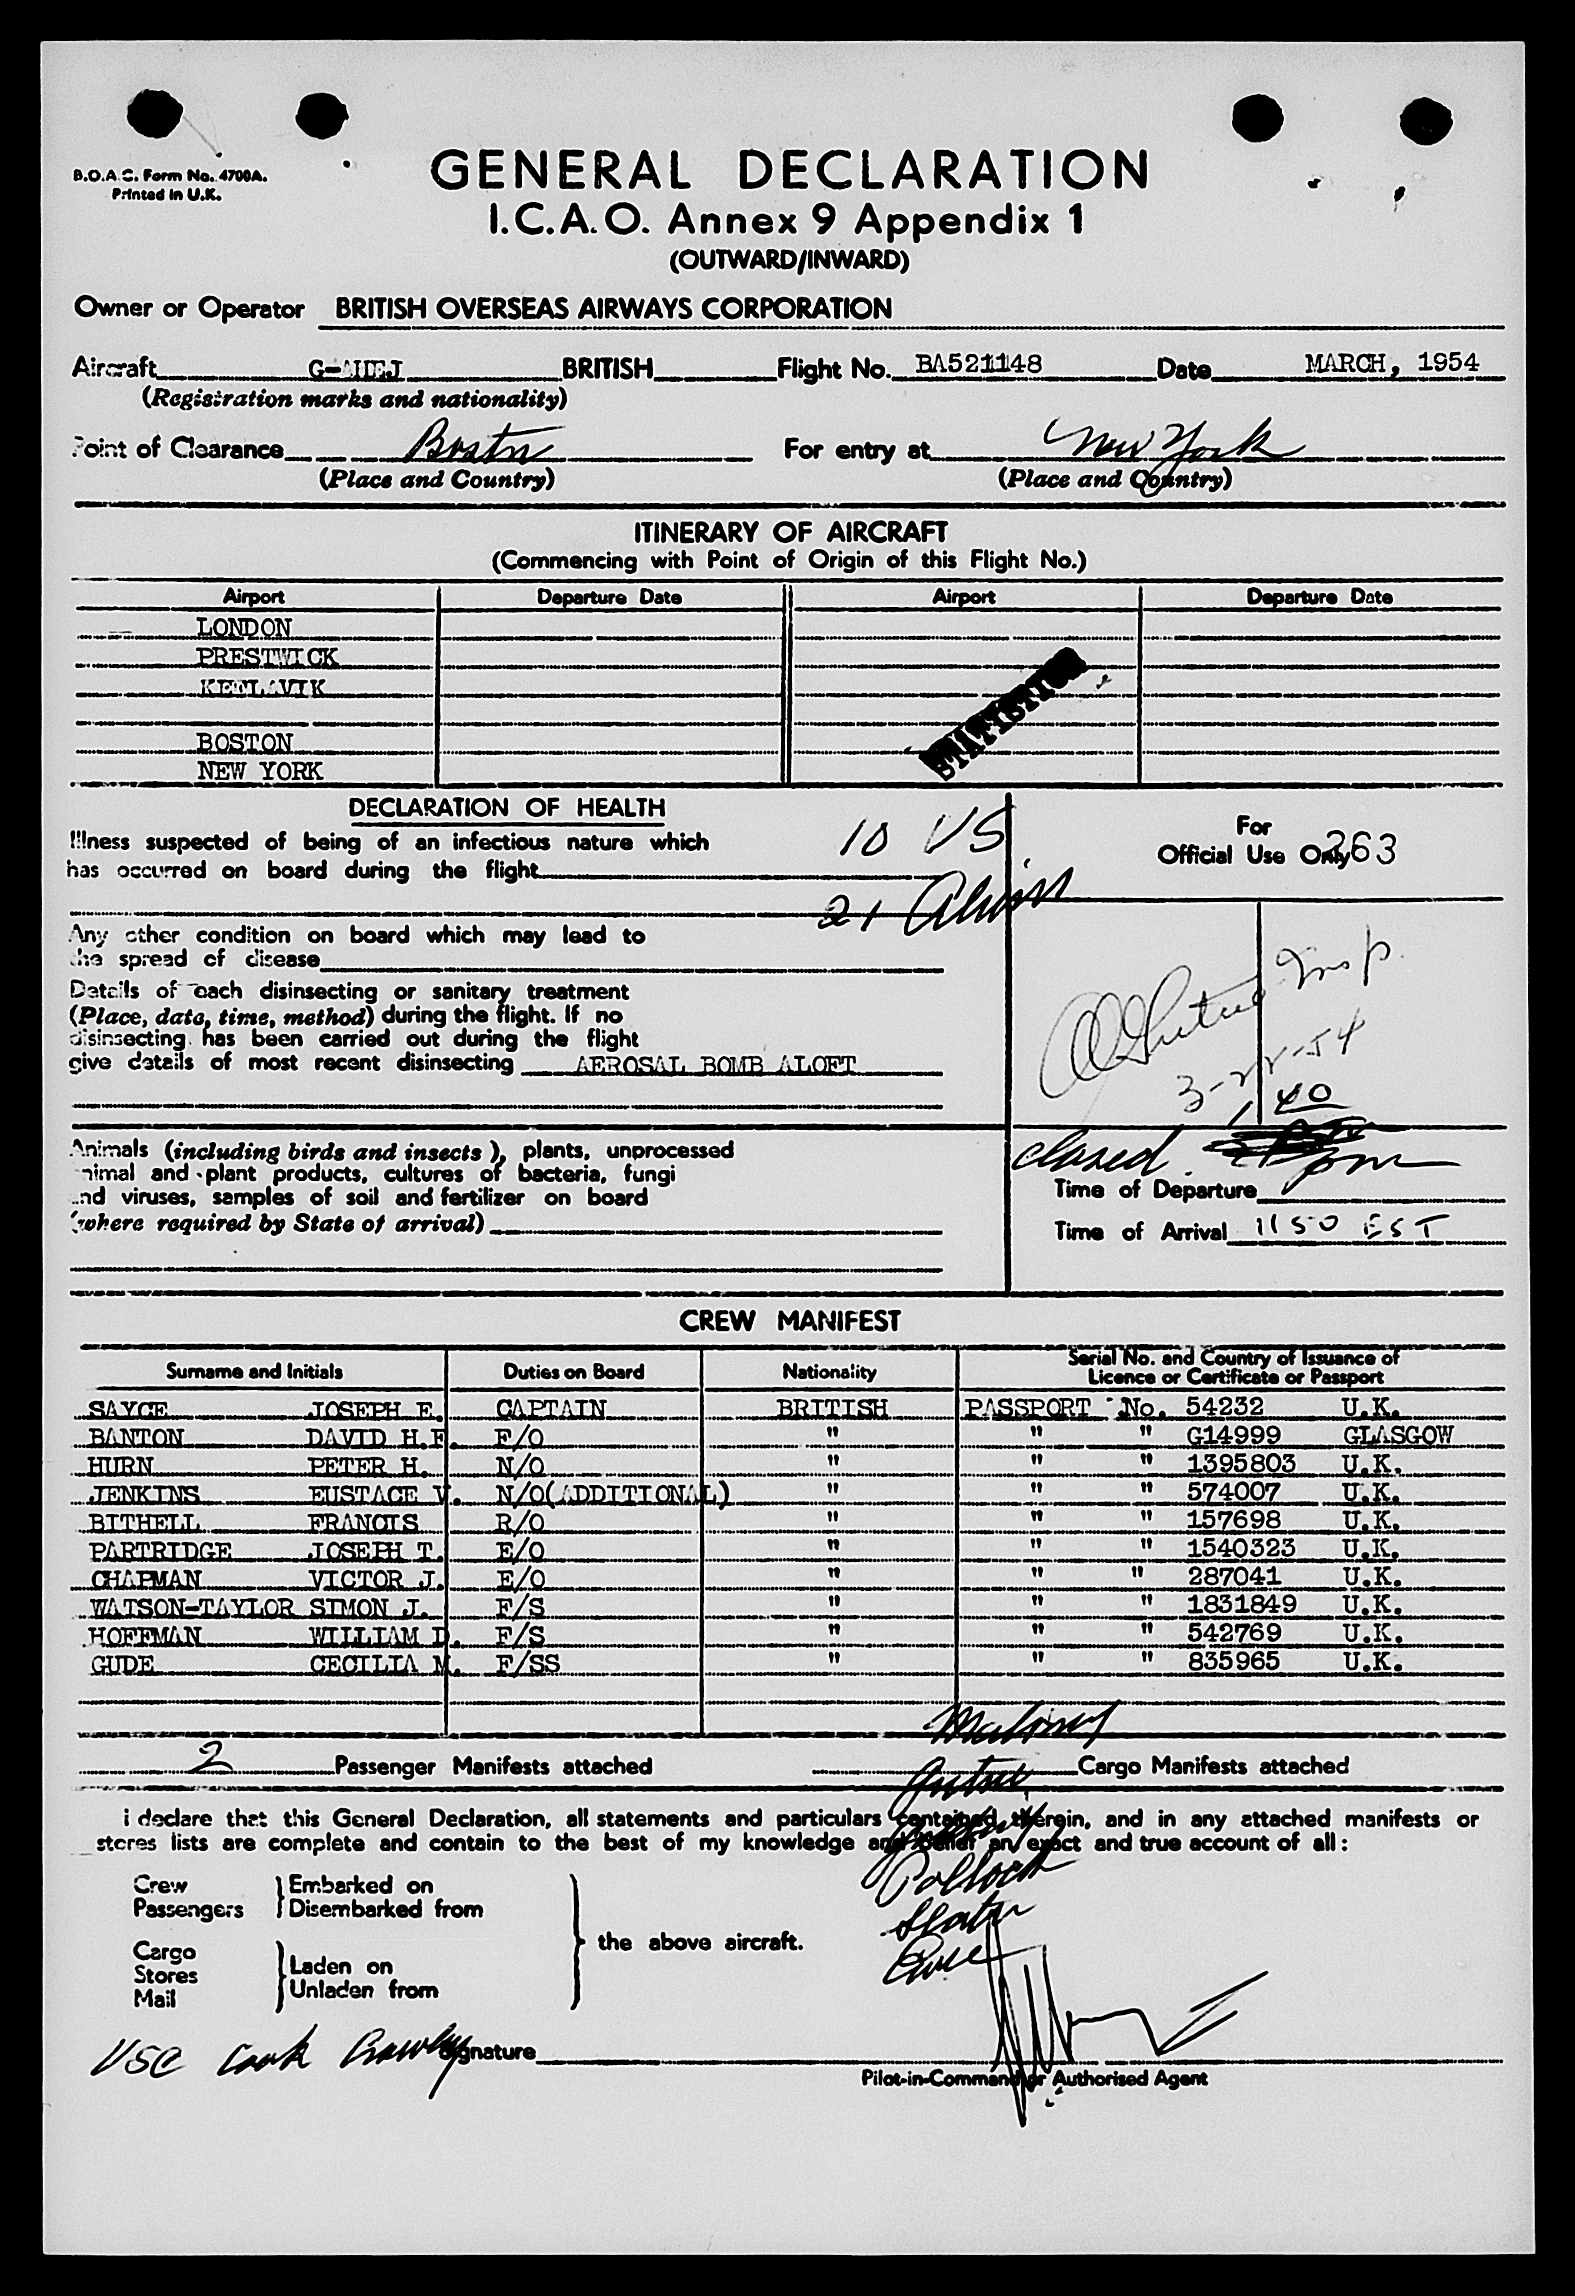 B.O.A.C. Form No. 4700A.
Printed in U.K.
GENERAL DECLARATION
I.C.A.O. Annex 9 Appendix 1
(OUTWARD/INWARD)
Owner or Operator BRITISH OVERSEAS AIRWAYS CORPORATION
Aircraft BRITISH Flight No. BA521148 Date MARCH, 1954
(Registration marks and nationality)
Point of Clearance Boston For entry at New York
(Place and Country) (Place and Country)
ITINERARY OF AIRCRAFT
(Commencing with Point of Origin of this Flight No.)
Airport Departure Date Airport Departure Date
LONDON
PRESTWICK
KEFLAVIK
BOSTON
NEW YORK
STATISTICS
DECLARATION OF HEALTH
Illness suspected of being of an infectious nature which
has occurred on board during the flight
10 US
21 Aliens
For
Official Use Only 263
Any other condition on board which may lead to
the spread of disease
Details of each disinsecting or sanitary treatment
(Place, data, time, method) during the flight. If no
disinsecting has been carried out during the flight
give details of most recent disinsecting AEROSAL BOMB ALOFT
Insp.
3-22-54
1 40
closed pm
Animals (including birds and insects), plants, unprocessed
animal and plant products, cultures of bacteria, fungi
and viruses, samples of soil and fertilizer on board
(where required by State of arrival)
Time of Departure
Time of Arrival 1150 EST
CREW MANIFEST
Surname and Initials Duties on Board Nationality Serial No. and Country of Issuance of Licence or Certificate or Passport
SAYCE JOSEPH E. CAPTAIN BRITISH PASSPORT No. 54232 U.K.
BANTON DAVID H.F. F/O " " " G14999 GLASGOW
HURN PETER H. N/O " " " 1395803 U.K.
JENKINS EUSTACE V. N/O(ADDITIONAL) " " " 574007 U.K.
BITHELL FRANCIS R/O " " " 157698 U.K.
PARTRIDGE JOSEPH T. E/O " " " 1540323 U.K.
CHAPMAN VICTOR J. E/O " " " 287041 U.K.
WATSON-TAYLOR SIMON J. F/S " " " 1831849 U.K.
HOFFMAN WILLIAM D. F/S " " " 542769 U.K.
GUDE CECILIA M. F/SS " " " 835965 U.K.
Maloney
2 Passenger Manifests attached Cargo Manifests attached
I declare that this General Declaration, all statements and particulars contained therein, and in any attached manifests or
stores lists are complete and contain to the best of my knowledge and belief an exact and true account of all :
Pollock
Crew
Passengers
Embarked on
Disembarked from
Cargo
Stores
Mail
Laden on
Unladen from
the above aircraft.
USC Cook Crowley Signature
Pilot-in-Command or Authorised Agent